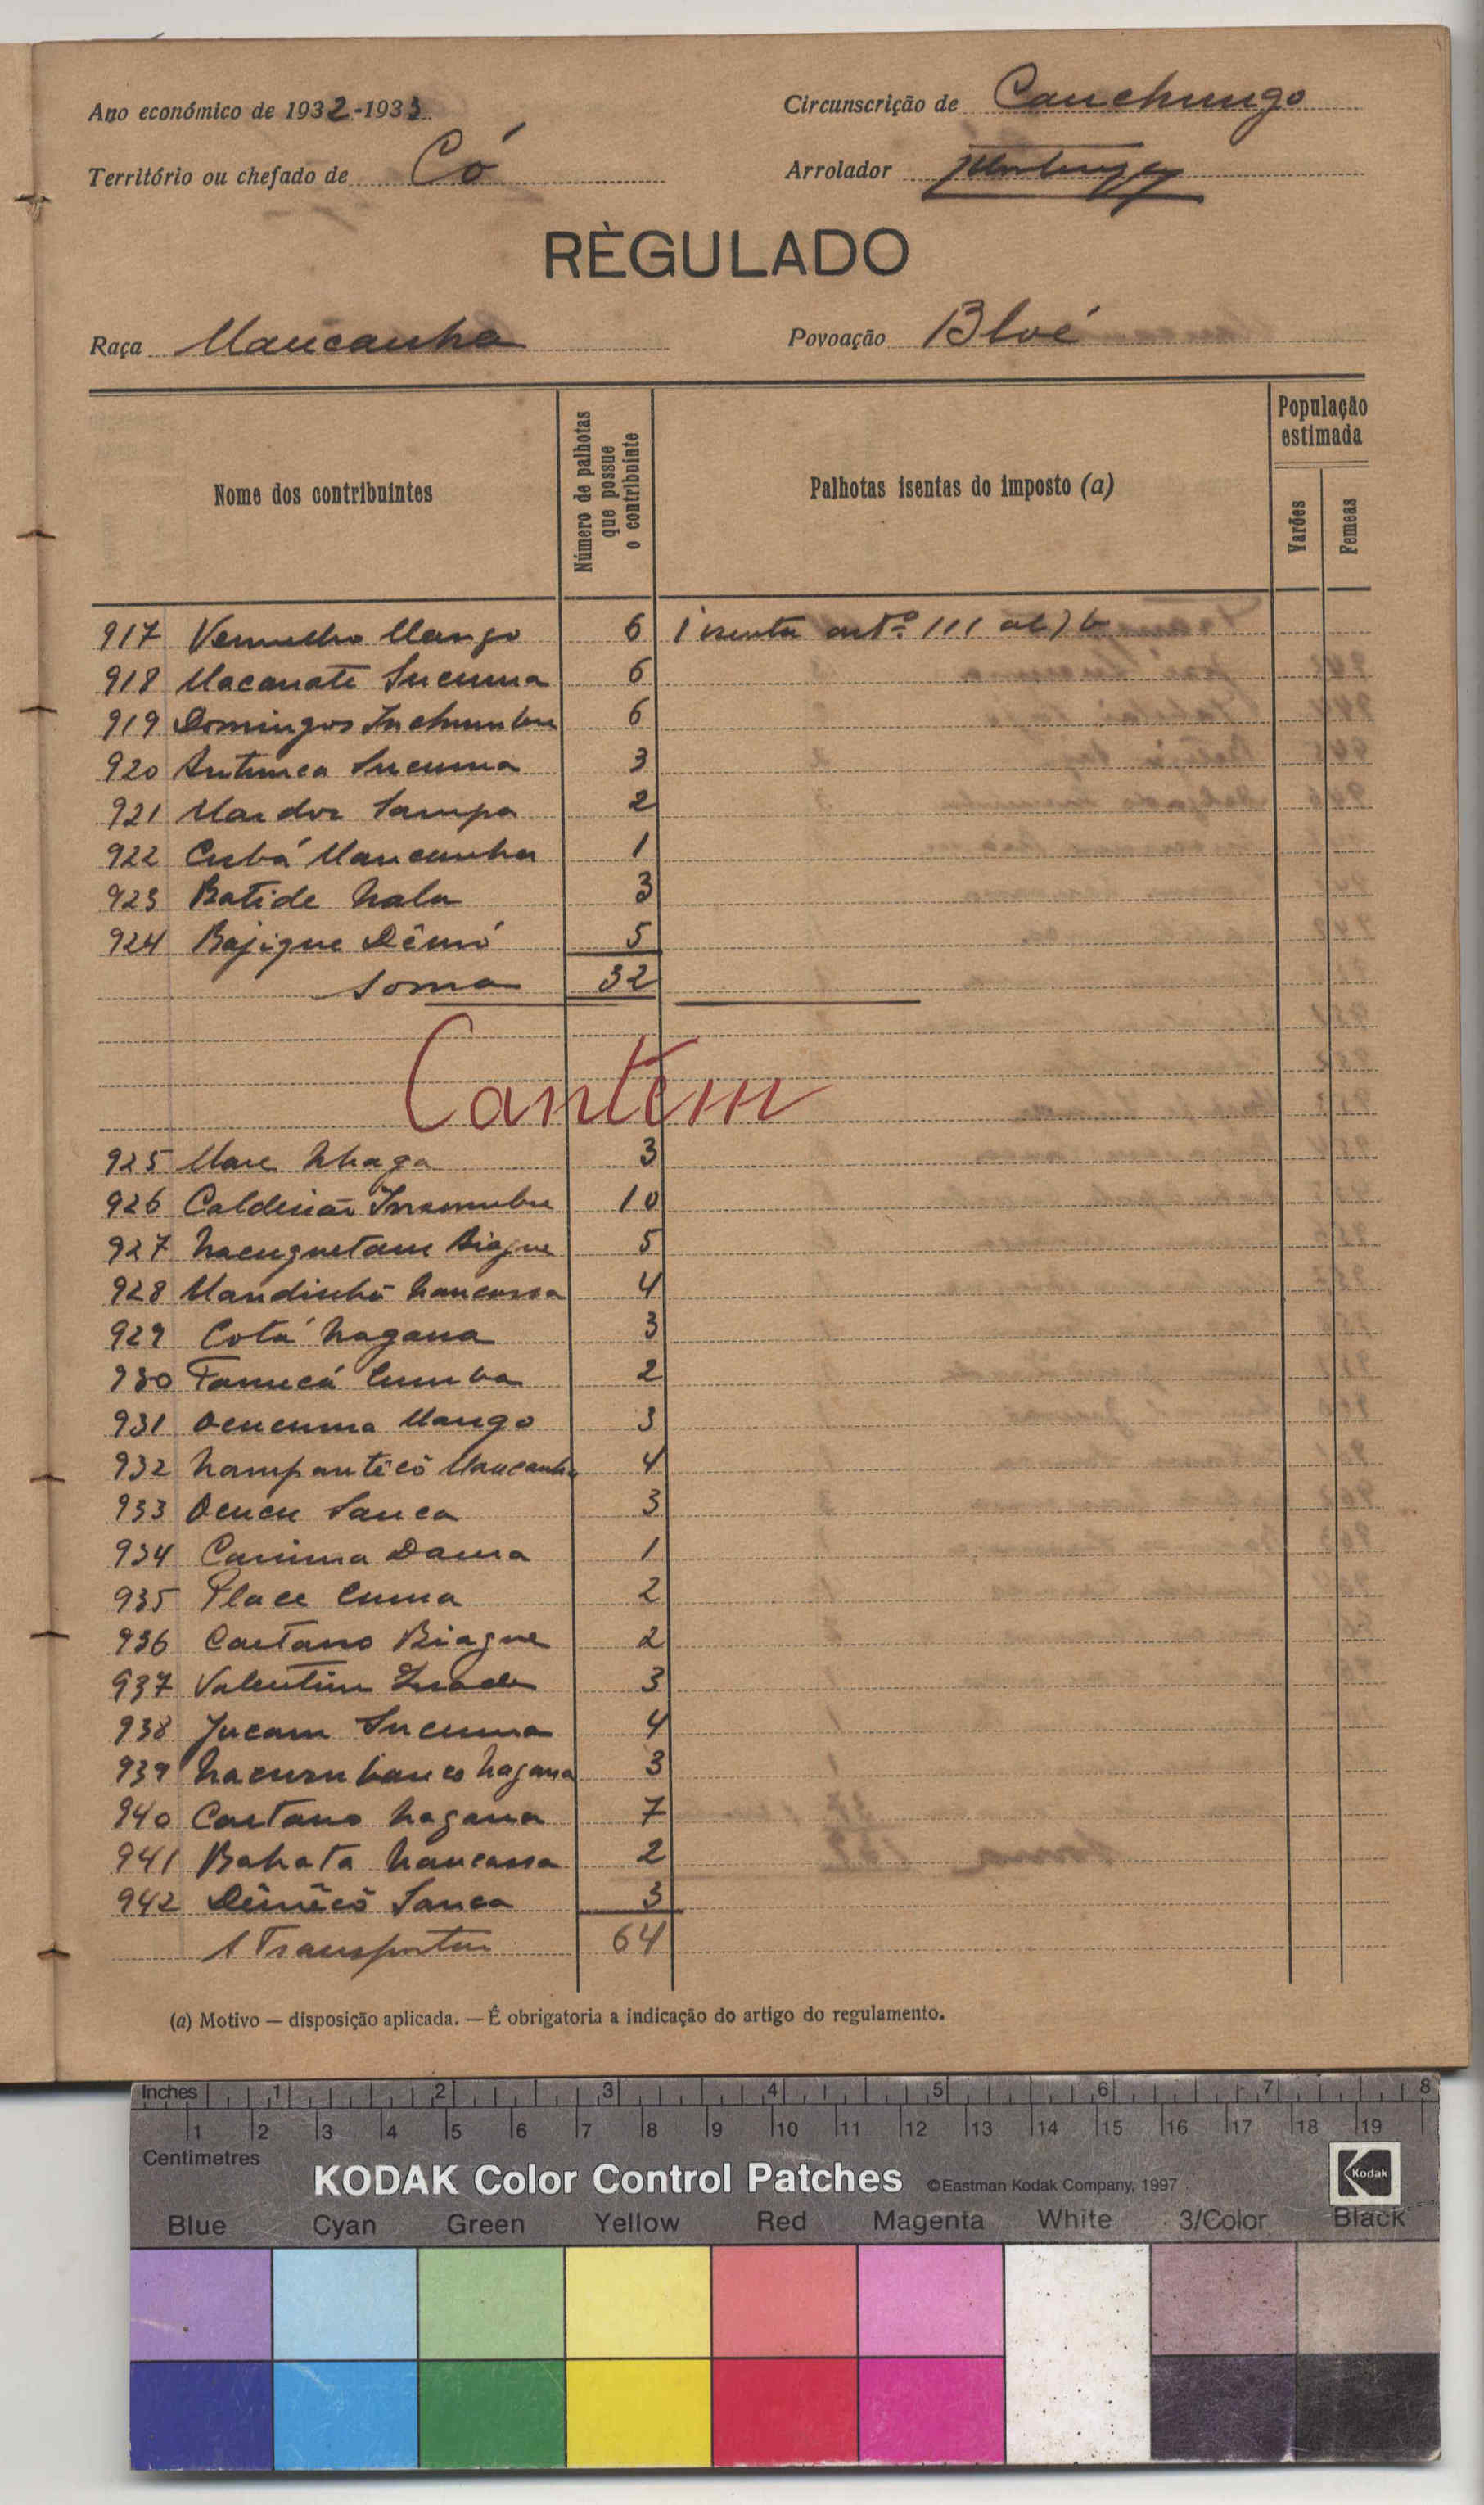 Ano económico de 1932-1933
Circunscrição de Canchungo
Território ou chefado de Có
Arrolador
RÈGULADO
Raça Mancanha
Povoação Bloé
Nome dos contribuintes
Número de palhotas que possue o contribuinte
Palhotas isentas do imposto (a)
População estimada
Varões
Femeas
917 Vermelho Mango 6 1 isenta artº 111 al) b
918 Macanate Sucuma 6
919 Domingos 6
920 Sucuma 3
921 Sampa 2
922 Cubá Mancanha 1
923 Batide Nala 3
924 Bajique 5
Soma 32
Cantém
925 Mare Nhaga 3
926 10
927 Biague 5
928 Nancassa 4
929 Cotá Nagana 3
930 2
931 Ocucuma Mango 3
932 Mancanha 4
933 Ocucu Sanca 3
934 Dama 1
935 Place Cuma 2
936 Caetano Biague 2
937 Valentim 3
938 Jucam Sucuma 4
939 Nagana 3
940 Caetano Nagana 7
941 Bahata Nancassa 2
942 Sanca 3
A Transportar 64
(a) Motivo — disposição aplicada. — É obrigatoria a indicação do artigo do regulamento.
Inches 1 2 3 4 5 6 7 8
1 2 3 4 5 6 7 8 9 10 11 12 13 14 15 16 17 18 19
Centimetres
KODAK Color Control Patches ©Eastman Kodak Company, 1997 Kodak
Blue Cyan Green Yellow Red Magenta White 3/Color Black